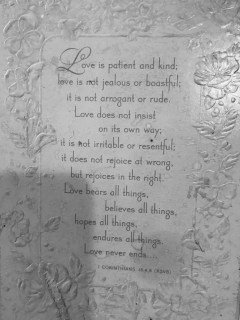 Love is patient and kind;
love is not jealous or boastful;
it is not arrogant or rude.
Love does not insist
on its own way;
it is not irritable or resentful;
it does not rejoice at wrong,
but rejoices in the right.
Love bears all things,
believes all things,
hopes all things,
endures all things.
Love never ends.
I CORINTHIANS